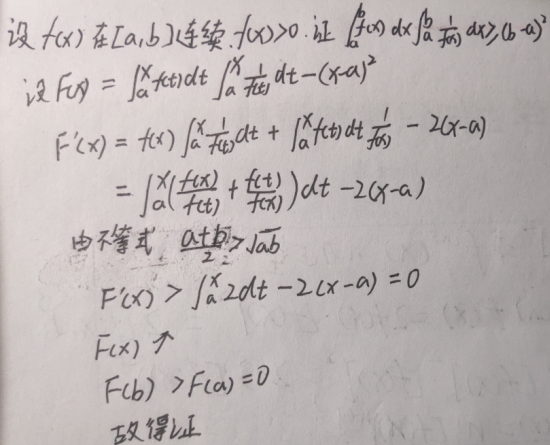 设 f(x) 在[a,b]连续.f(x)>0.证 ∫_a^b f(x) dx ∫_a^b 1/f(x) dx ≥ (b-a)²
设 F(x) = ∫_a^x f(t)dt ∫_a^x 1/f(t) dt - (x-a)²
F'(x) = f(x) ∫_a^x 1/f(t) dt + ∫_a^x f(t)dt 1/f(x) - 2(x-a)
= ∫_a^x (f(x)/f(t) + f(t)/f(x)) dt - 2(x-a)
由不等式 (a+b)/2 > √ab
F'(x) > ∫_a^x 2dt - 2(x-a) = 0
F(x) ↑
F(b) > F(a) = 0
故得证